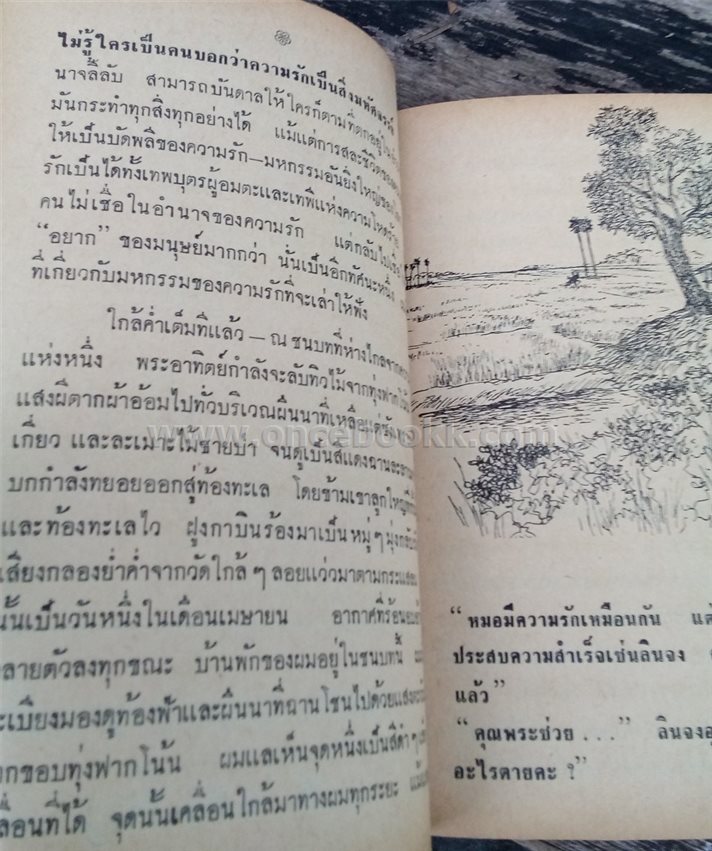 ไม่รู้ใครเป็นคนบอกว่าความรักเป็นสิ่งมหัศจรรย์
นาจลี้ลับ สามารถบันดาลให้ใครก็ตามที่ตกอยู่ใน
มันกระทำทุกสิ่งทุกอย่างได้ แม้แต่การสละชีวิต
ให้เป็นบัดพลีของความรัก—มหกรรมอันยิ่งใหญ่ของ
รักเป็นได้ทั้งเทพบุตรผู้อมตะและเทพีแห่งความโหดร้าย
คนไม่เชื่อในอำนาจของความรัก แต่กลับไป
“อยาก” ของมนุษย์มากกว่า นั่นเป็นอีกทัศนะหนึ่ง
ที่เกี่ยวกับมหกรรมของความรักที่จะเล่าให้ฟัง
ใกล้ค่ำเต็มทีแล้ว — ณ ชนบทที่ห่างไกลจาก
แห่งหนึ่ง พระอาทิตย์กำลังจะลับทิวไม้จากทุ่งฟาก
แสงผีตากผ้าอ้อมไปทั่วบริเวณผืนนาที่เหลือแต่ซัง
เกี่ยว และละเมาะไม้ชายป่า จนดูเป็นสีแดงฉาน
บกกำลังทยอยออกสู่ท้องทะเล โดยข้ามเขาลูกใหญ่
และท้องทะเลไว ฝูงกาบินร้องมาเป็นหมู่ๆ มุ่งกลับ
เสียงกลองย่ำค่ำจากวัดใกล้ๆ ลอยแว่วมาตามกระแส
นั้นเป็นวันหนึ่งในเดือนเมษายน อากาศที่ร้อน
ลายตัวลงทุกขณะ บ้านพักของผมอยู่ในชนบทนี้
ะเบียงมองดูท้องฟ้าและผืนนาที่ฉานโชนไปด้วยแสง
ากขอบทุ่งฟากโน้น ผมแลเห็นจุดหนึ่งเป็นสีดำๆ
ลื่อนที่ได้ จุดนั้นเคลื่อนใกล้มาทางผมทุกระยะ
“หมอมีความรักเหมือนกัน แต่
ประสบความสำเร็จเช่นลินจง
แล้ว”
“คุณพระช่วย . . .” ลินจง
อะไรตายคะ ?”
www.oncebookk.com